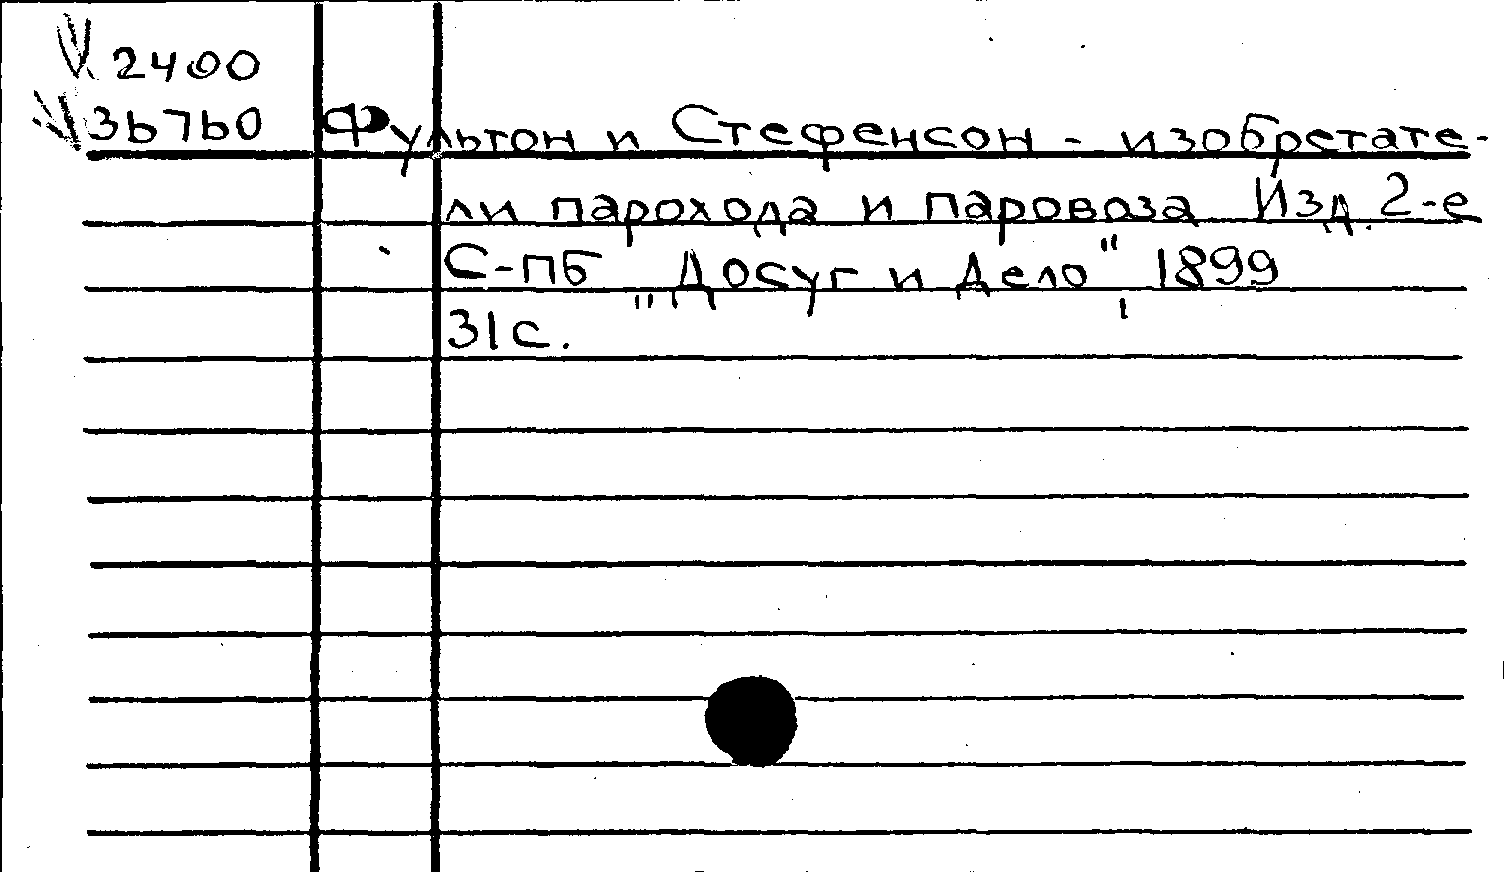 V 2400
V 36760 Фультон и Стефенсон - изобретате-
ли парохода и паровоза Изд. 2-е
С-ПБ „Досуг и Дело", 1899
31 с.